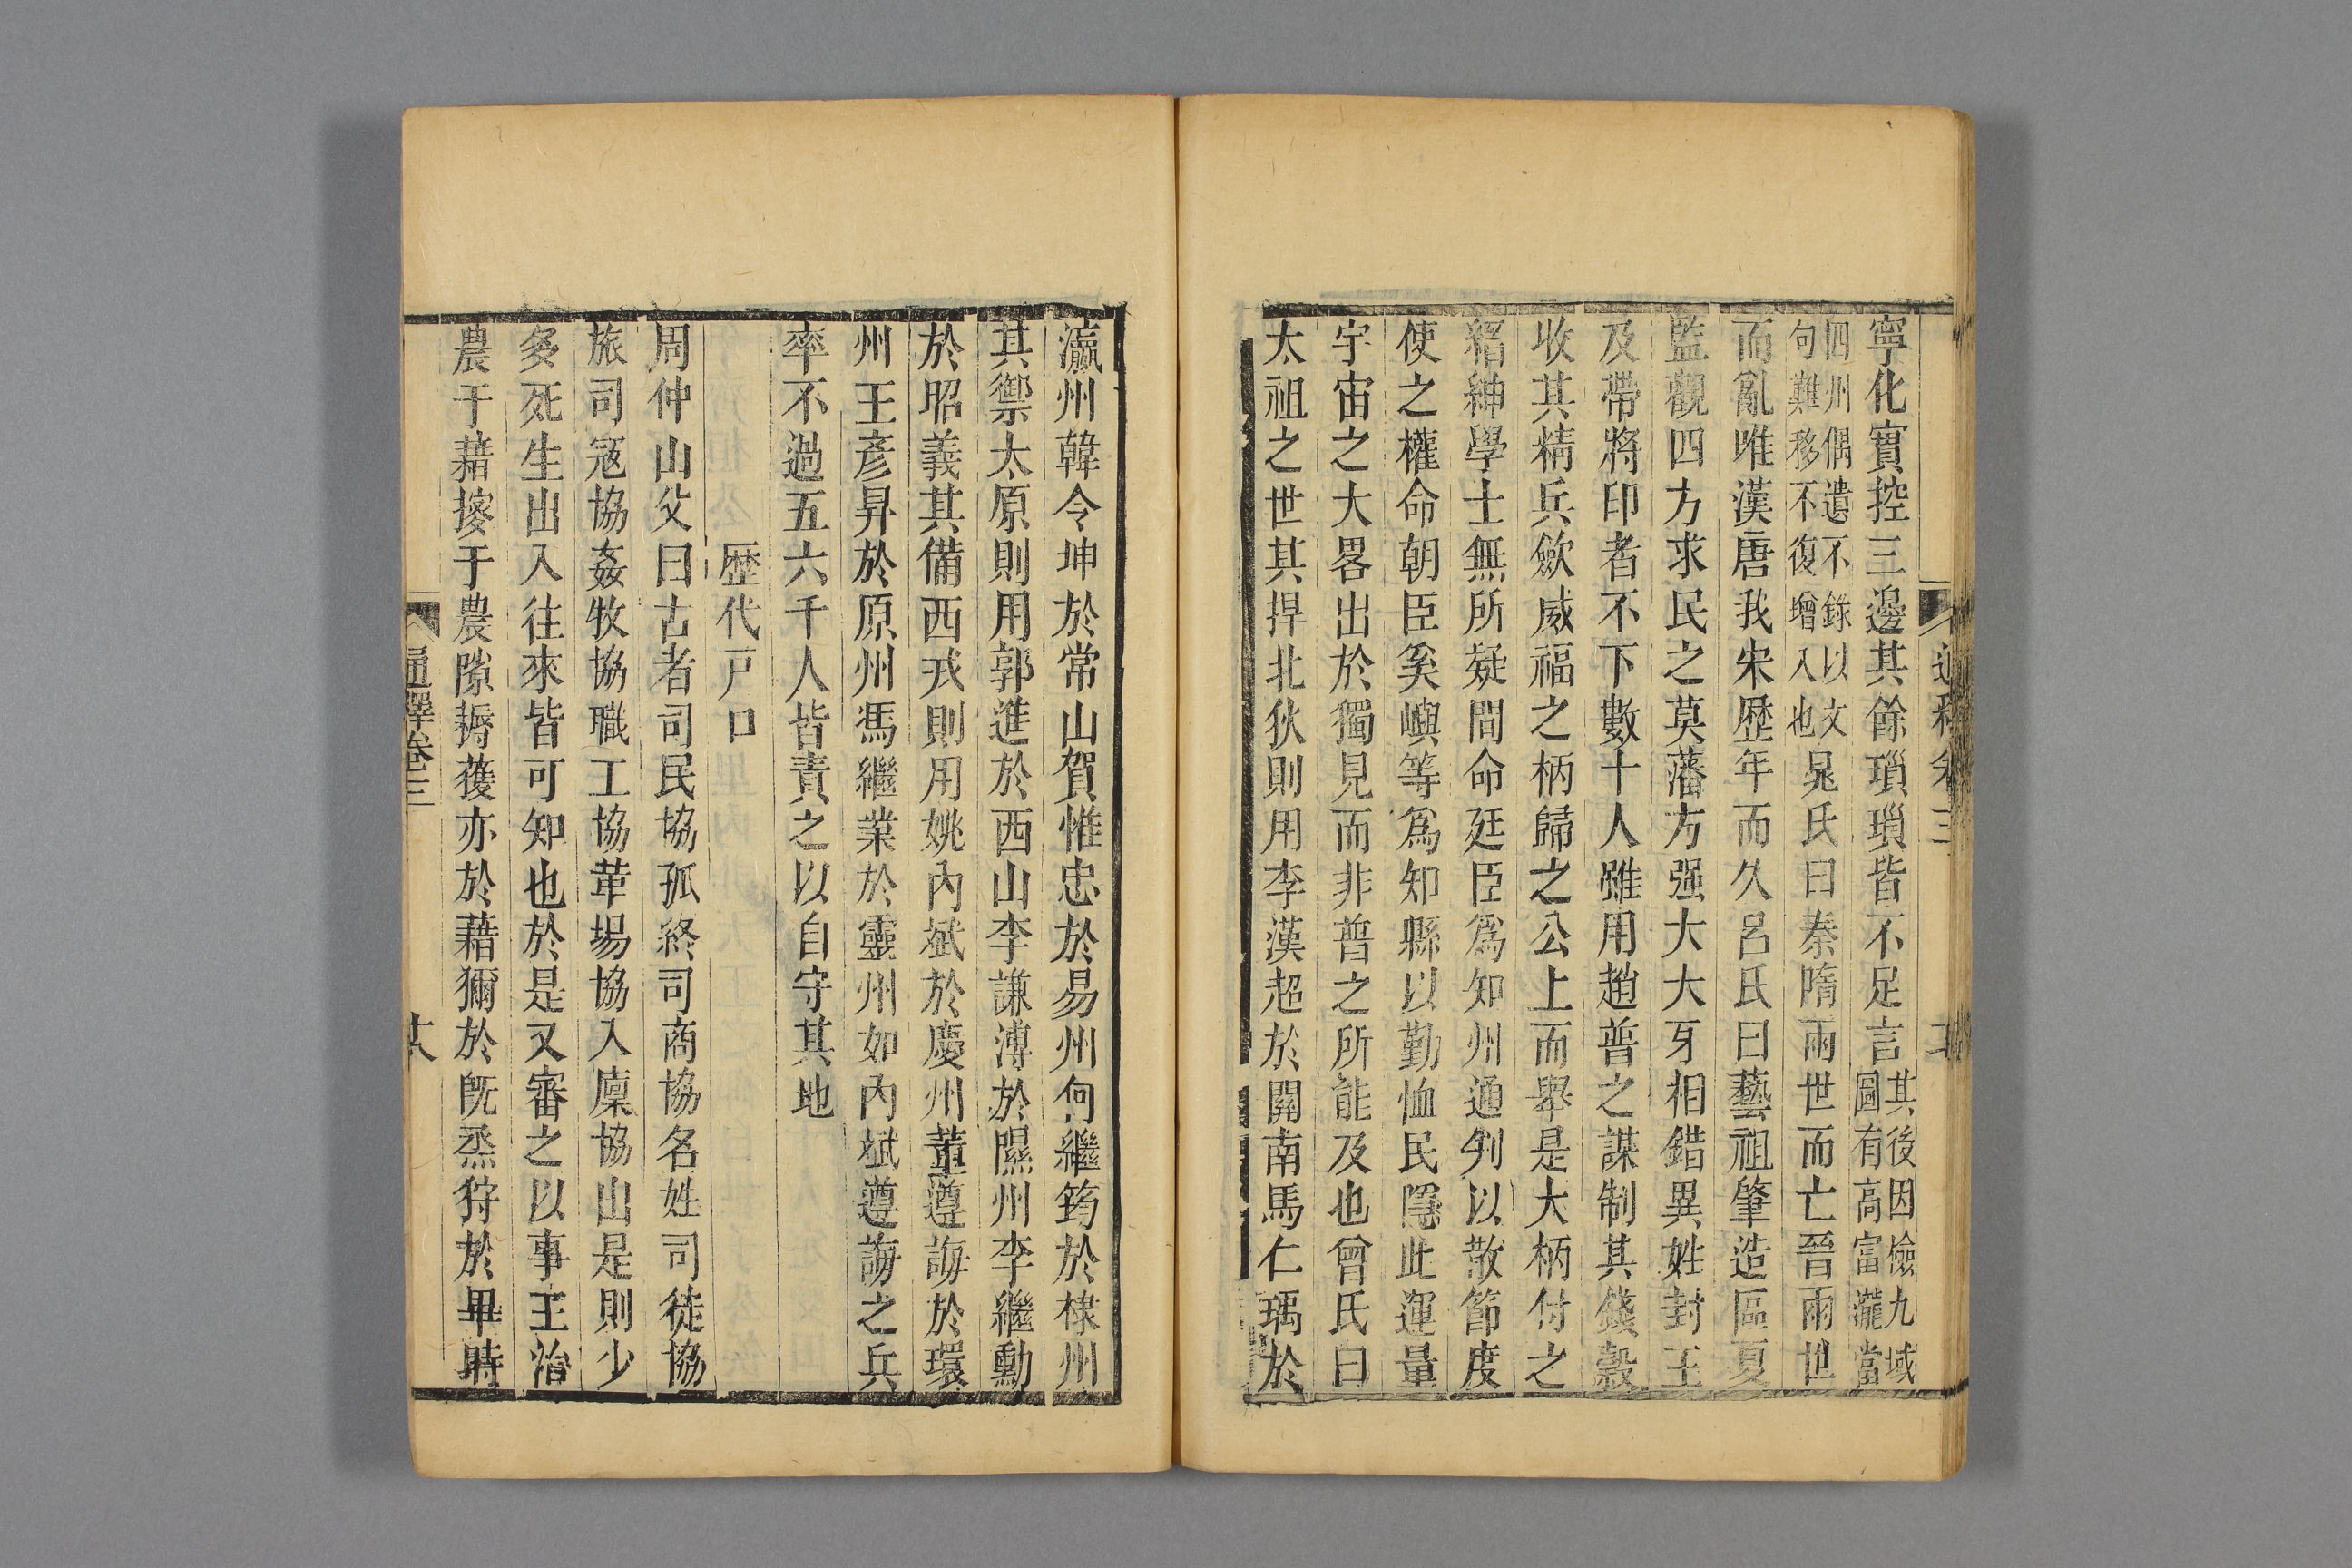 寧化實控三邊其餘瑣瑣皆不足言其後因檢九域圖有高富瀧當
四州偶遺不錄以文句難移不復增入也晁氏曰秦隋兩世而亡晉兩世
而亂唯漢唐我宋歷年而久呂氏曰藝祖肇造區夏
監觀四方求民之莫藩方强大大牙相錯異姓封王
及帶將印者不下數十人雖用趙普之謀制其錢穀
收其精兵歛威福之柄歸之公上而舉是大柄付之
縉紳學士無所疑間命廷臣爲知州通判以散節度
使之權命朝臣奚嶼等爲知縣以勤恤民隱此運量
宇宙之大畧出於獨見而非普之所能及也曾氏曰
太祖之世其捍北狄則用李漢超於關南馬仁瑀於
瀛州韓令坤於常山賀惟忠於易州何繼筠於棣州
其禦太原則用郭進於西山李謙溥於隰州李繼勳
於昭義其備西戎則用姚內斌於慶州董遵誨於環
州王彥昇於原州馮繼業於靈州如內斌遵誨之兵
率不過五六千人皆責之以自守其地
歷代戸口
周仲山父曰古者司民協孤終司商協名姓司徒協
旅司冦協姦牧協職工協革場協入廩協出是則少
多死生出入往來皆可知也於是又審之以事王治
農于藉搜于農隙耨穫亦於藉獮於旣烝狩於畢時
通釋卷三